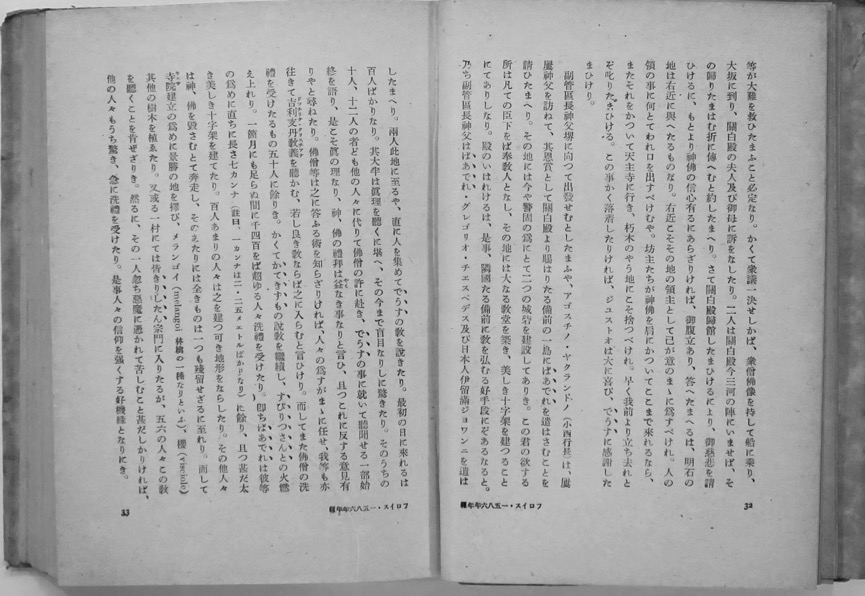 等が大難を救ひたまふこと必定なり。かくて衆議一決せしかば、衆僧佛像を持して船に乘り、
大坂に到り、關白殿の夫人及び御母に訴をなしたり。二人は關白殿今三河の陣にいませば、そ
の歸りたまはむ折に傳へむと約したまへり。さて關白殿歸館したまひけるにより、御慈悲を請
ひけるに、もとより神佛の信心有るにあらざりければ、御腹立あり、答へたまへるは、明石の
地は右近に與へたるものなり。右近こそその地の領主として己が意のまゝに爲すべけれ。人の
領の事に何とてわれ口を出すべけむや。坊主たちが神佛を肩にかついでここまで來れるなら、
またそれをかついで天主寺に行き、朽木のやう地にこそ捨つべけれ。早く我前より立ち去れと
ぞ叱りたまひける。この事かく落着したりければ、ジュストオは大に喜び、でうすに感謝した
まひけり。
副管區長神父堺に向つて出發せむとしたまふや、アゴスチノ・ヤクランドノ（小西行長）は、屢
屢神父を訪ねて、其恩賞として關白殿より賜はりたる備前の一島にぱあでれを遣はさむことを
請ひたまへり。その地には今や警固の爲にとて二つの城砦を建設してありき。この君の欲する
所は凡ての臣下をば奉敎人となし、その地には大なる敎堂を築き、美しき十字架を建つること
にてありしなり。殿のいはれけるは、是事、隣國たる備前に敎を弘むる好手段にぞあるなると。
乃ち副管區長神父はぱあでれ・グレゴリオ・チエスペデス及び日本人伊留滿ジョワンニを遣は
フロイス・一五八六年年報
32
したまへり。兩人此地に至るや、直に人を集めてでうすの敎を說きたり。最初の日に來れるは
百人ばかりなり。其大半は眞理を聽くに堪へ、その今まで盲目なりしに驚きたり。そのうちの
十人、十二人の者ども他の人々に代りて佛僧の許に赴き、でうすの事に就いて聽聞せる一部始
終を語り、是こそ眞の理なり、神、佛の禮拜は益なき事なりと言ひ、且つこれに反する意見有
りやと尋ねたり。佛僧等は之に答ふる術を知らざりければ、人々の爲すがまゝに任せ、我等も亦
往きて吉利支丹敎義を聽かむ、若し良き敎ならば之に入らむと言ひけり。而してまた佛僧の洗
禮を受けたるもの五十人に餘りき。かくてかてきずもの說敎を繼續し、すぴりつさんとの火燃
え上れり。一箇月にも足らぬ間に千四百をば超ゆる人々洗禮を受けたり。卽ちぱあでれは彼等
の爲めに直ちに長さ七カンナ（註曰、一カンナは二・二五メェトルばかりなり）に餘り、且つ甚だ太
き美しき十字架を建てたり。百人あまりの人々は之を建つ可き地形をならしたり。その他人々
は神、佛を毀さむとて奔走し、そのあたりには全きものは一つも殘留せざるに至れり。而して
寺院建立の爲めに景勝の地を擇び、メランゴイ（melangoi 林檎の一種なりといふ）、櫻
其他の樹木を植ゑたり。又或る一村にては皆きりしたん宗門に入りたるが、五六の人々この敎
を聽くことを肯ぜざりき。然るに、その一人忽ち惡魔に憑かれて苦しむこと甚だしかりければ、
他の人々もうち驚き、急に洗禮を受けたり。是事人々の信仰を强くする好機緣となりにき。
フロイス・一五八六年年報
33